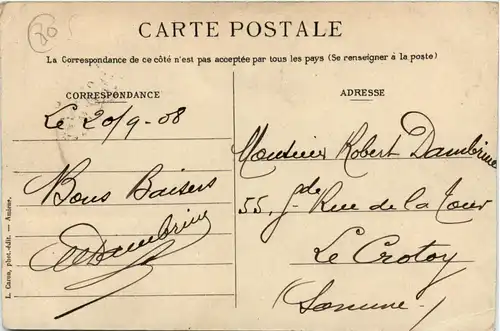 80
CARTE POSTALE
La Correspondance de ce côté n'est pas acceptée par tous les pays (Se renseigner à la poste)
CORRESPONDANCE
Le 20/9-08
Bons Baisers
Dambrine
ADRESSE
Monsieur Robert Dambrine
55, Gde Rue de la Tour
Le Crotoy
(Somme)
L. Caron, phot.-édit. — Amiens.